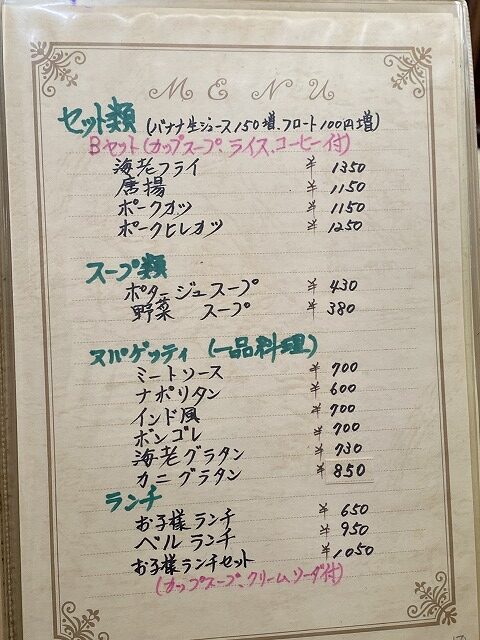 MENU
セット類 (バナナ生ジュース150増、フロート100円増)
Bセット(カップスープ、ライス、コーヒー付)
海老フライ ¥1350
唐揚 ¥1150
ポークカツ ¥1150
ポークヒレカツ ¥1250
スープ類
ポタージュスープ ¥430
野菜 スープ ¥380
スパゲッティ (一品料理)
ミートソース ¥700
ナポリタン ¥600
インド風 ¥700
ボンゴレ ¥700
海老グラタン ¥730
カニグラタン ¥850
ランチ
お子様ランチ ¥650
ベルランチ ¥950
お子様ランチセット ¥1050
(カップスープ、クリームソーダ付)